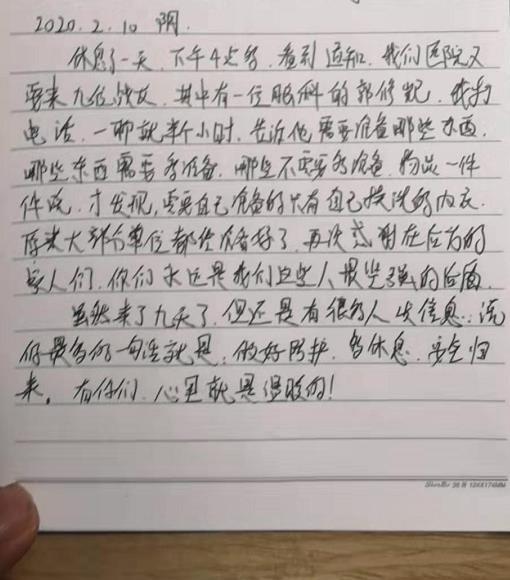 2020.2.10 阴.
休息了一天,下午4点多,看到通知,我们医院又
要来九位战友,其中有一位眼科的郭修,我打
电话,一聊就半个小时,告诉他需要准备哪些东西,
哪些东西需要多准备,哪些不需要多准备,物品一件
件说,才发现,需要自己准备的只有自己换洗的内衣.
原来大部分单位都给准备好了,再次感谢在后方的
家人们,你们永远是我们这些人最坚强的后盾.
虽然来了九天了,但还是有很多人发信息,说
的最多的一句话就是,做好防护,多休息,安全归
来,有你们,心里就是温暖的!